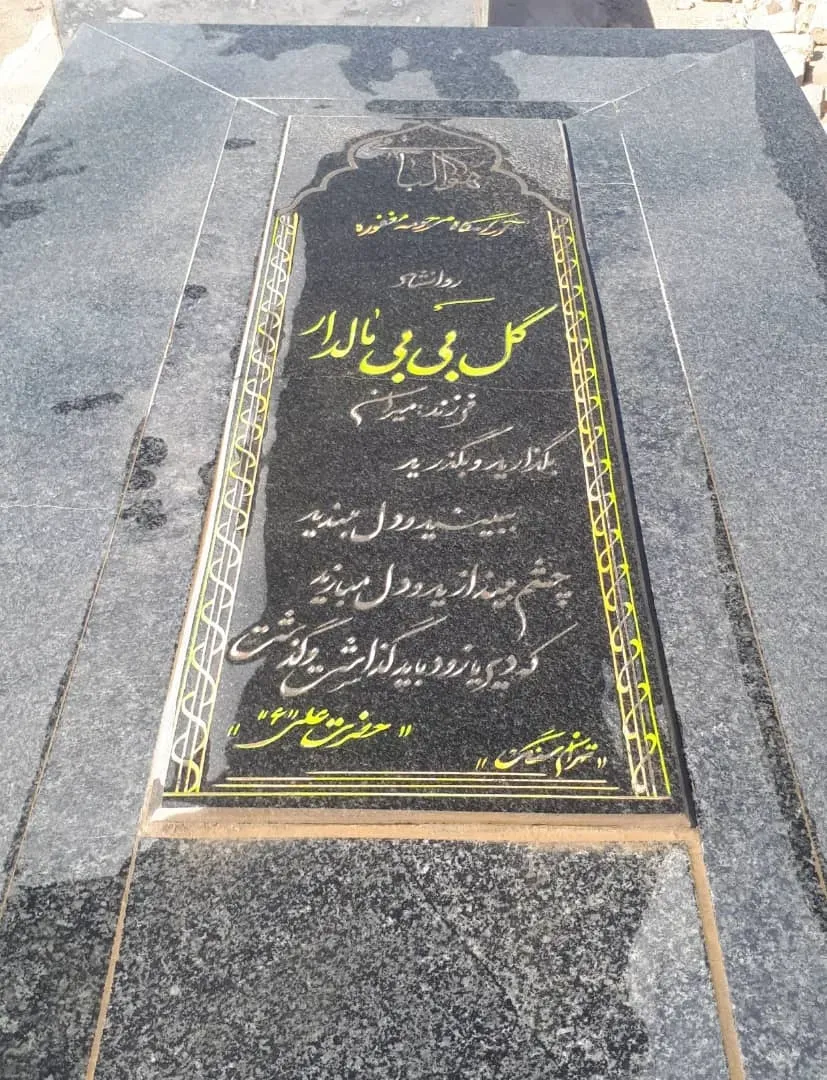 هوالباقی
آرامگاه مرحومه مغفوره
روانشاد
گل بی بی مالدار
فرزند: میران
بگذارید و بگذرید
ببینید و دل مبندید
چشم بیندازید و دل مبازید
که دیر یا زود باید گذاشت و گذشت
"حضرت علی "ع""
"تهران سنگ"